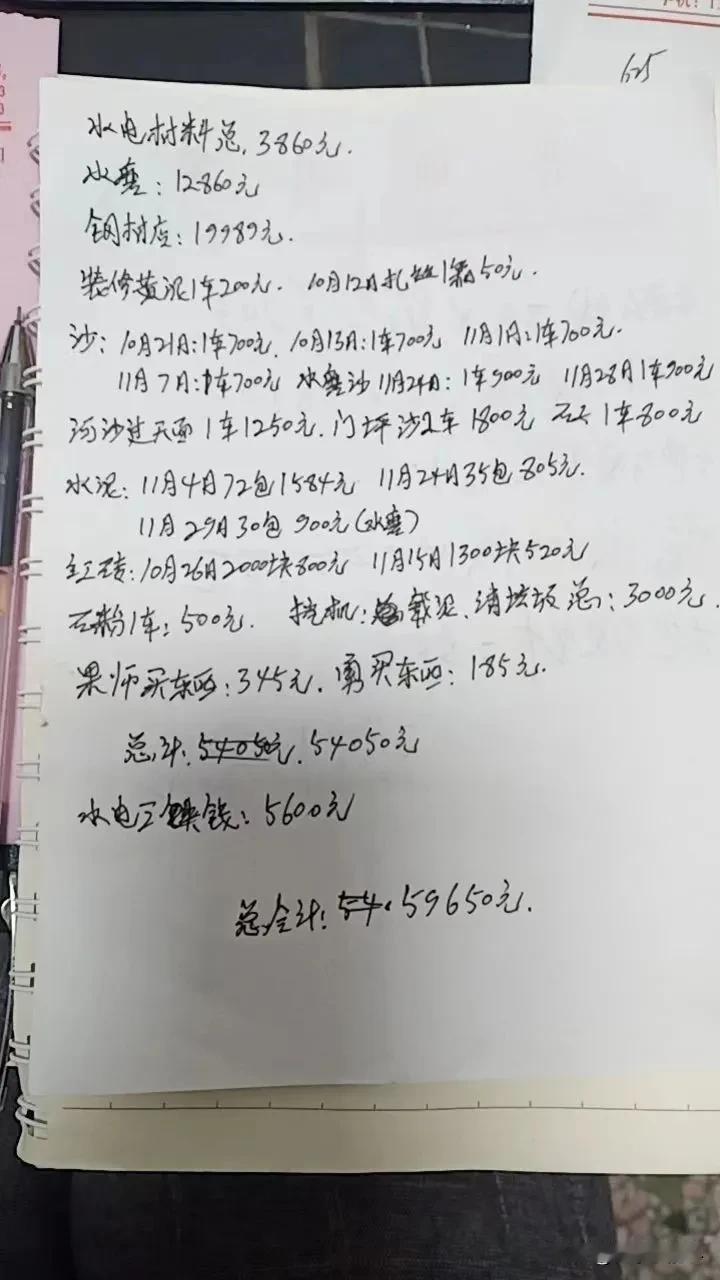 625
水电材料总,3860元.
水磨:12860元
钢材店:19989元.
装修黄泥1车200元. 10月12日扎丝1箱50元.
沙:10月21日:1车700元. 10月13日:1车700元 11月1日:1车700元.
11月7日:1车700元 水磨沙11月24日:1车900元 11月28日1车900元
河沙过天面1车1250元. 门坪沙2车1800元 石子1车800元
水泥:11月4日72包1584元 11月24日35包805元.
11月29日30包900元(水磨)
红砖:10月26日2000块800元 11月15日1300块520元
石粉1车:500元. 挖机:载泥、清垃圾总:3000元.
果师买东西:345元. 勇买东西:185元.
总计:54050元.54050元
水电工钱:5600元
总合计:54.59650元.